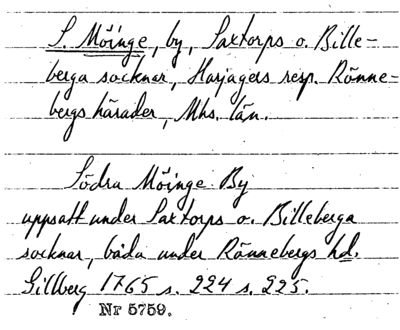 S. Möinge, by, Saxtorps o. Bille-
berga socknar, Harjagers resp. Rönne-
bergs härader, Mhs. län.
Södra Möinge By
uppsatt under Saxtorps o. Billeberga
socknar, båda under Rönnebergs hd.
Gillberg 1765 s. 224 s. 225.
Nr 5759.